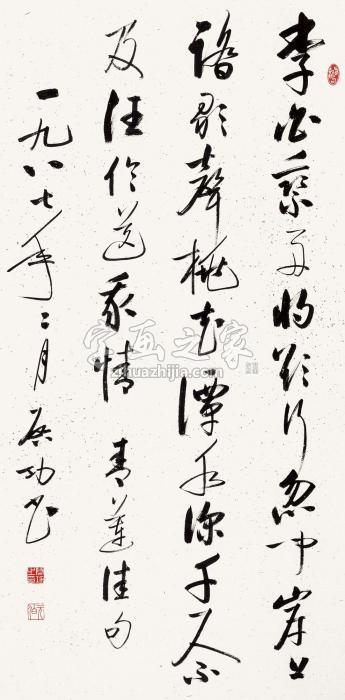 李白乘舟將欲行忽聞岸上
踏歌聲桃花潭水深千尺不
及汪倫送我情 青蓮佳句
一九八七年二月 啟功書
字画之家
zihuazhijia.com